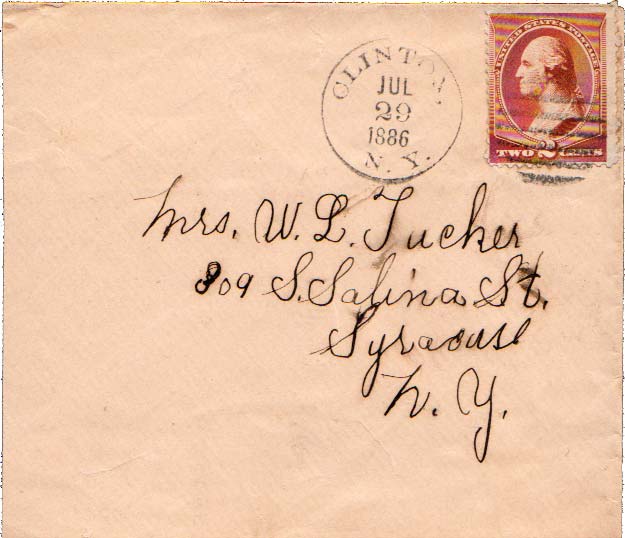 CLINTON,
JUL
29
1886
N. Y.
UNITED STATES POSTAGE
TWO 2 CENTS
Mrs. W. L. Tucker
809 S. Salina St.
Syracuse
N. Y.